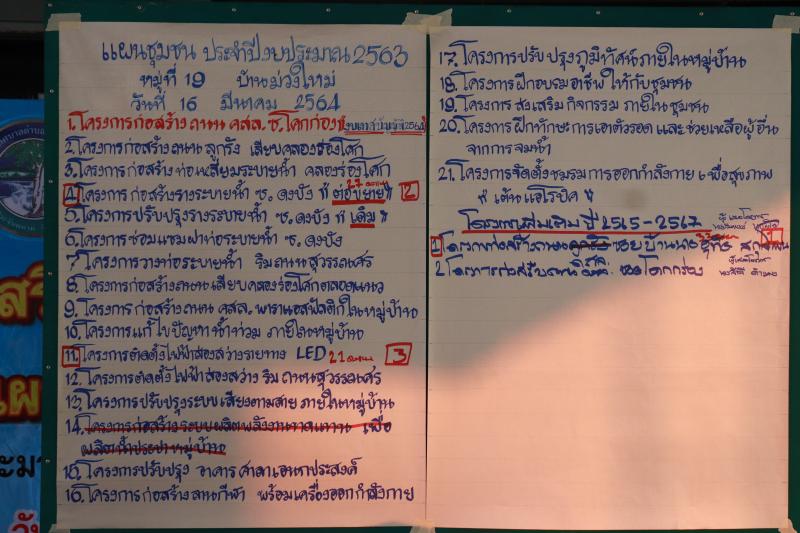 แผนชุมชน ประจำปีงบประมาณ 2563
หมู่ที่ 19 บ้านม่วงใหม่
วันที่ 16 มีนาคม 2564
1.โครงการก่อสร้าง ถนน คสล. ซ.โคกก่อง
2.โครงการก่อสร้างถนน ลูกรัง เลียบคลองร่องโศก
3.โครงการก่อสร้าง ท่อเหลี่ยมระบายน้ำ คลองร่องโศก
4.โครงการ ก่อสร้างรางระบายน้ำ ซ.ดงบัง "ต่อขยาย" 2
5.โครงการปรับปรุงรางระบายน้ำ ซ.ดงบัง "เดิม"
6.โครงการซ่อมแซมฝาท่อระบายน้ำ ซ.ดงบัง
7.โครงการวางท่อระบายน้ำ ริมถนนสุวรรณศร
8.โครงการก่อสร้างถนน เลียบคลองร่องโศกตลอดแนว
9.โครงการก่อสร้างถนน คสล. พาราแอสฟัลติกในหมู่บ้าน
10.โครงการแก้ไขปัญหาน้ำท่วม ภายในหมู่บ้าน
11.โครงการติดตั้งไฟฟ้าส่องสว่างรายทาง LED 21 3
12.โครงการติดตั้งไฟฟ้าส่องสว่าง ริมถนนสุวรรณศร
13.โครงการปรับปรุงระบบเสียงตามสาย ภายในหมู่บ้าน
14.โครงการก่อสร้างระบบผลิตพลังงานทดแทน เพื่อ
ผลิตน้ำประปาหมู่บ้าน
15.โครงการปรับปรุง อาคารศาลาเอนกประสงค์
16.โครงการก่อสร้างลานกีฬา พร้อมเครื่องออกกำลังกาย
17.โครงการปรับปรุงภูมิทัศน์ภายในหมู่บ้าน
18.โครงการฝึกอบรมอาชีพ ให้กับชุมชน
19.โครงการ ส่งเสริมกิจกรรม ภายในชุมชน
20.โครงการฝึกทักษะการเอาตัวรอด และช่วยเหลือผู้อื่น
จากการจมน้ำ
21.โครงการจัดตั้งชมรมการออกกำลังกาย เพื่อสุขภาพ
"เต้นแอโรบิค"
โครงการเพิ่มเติม ปี 2565-2567
1 โครงการก่อสร้างถนน ซอยบ้านนาง
2 โครงการก่อสร้างถนน ซอยโคกก่อง